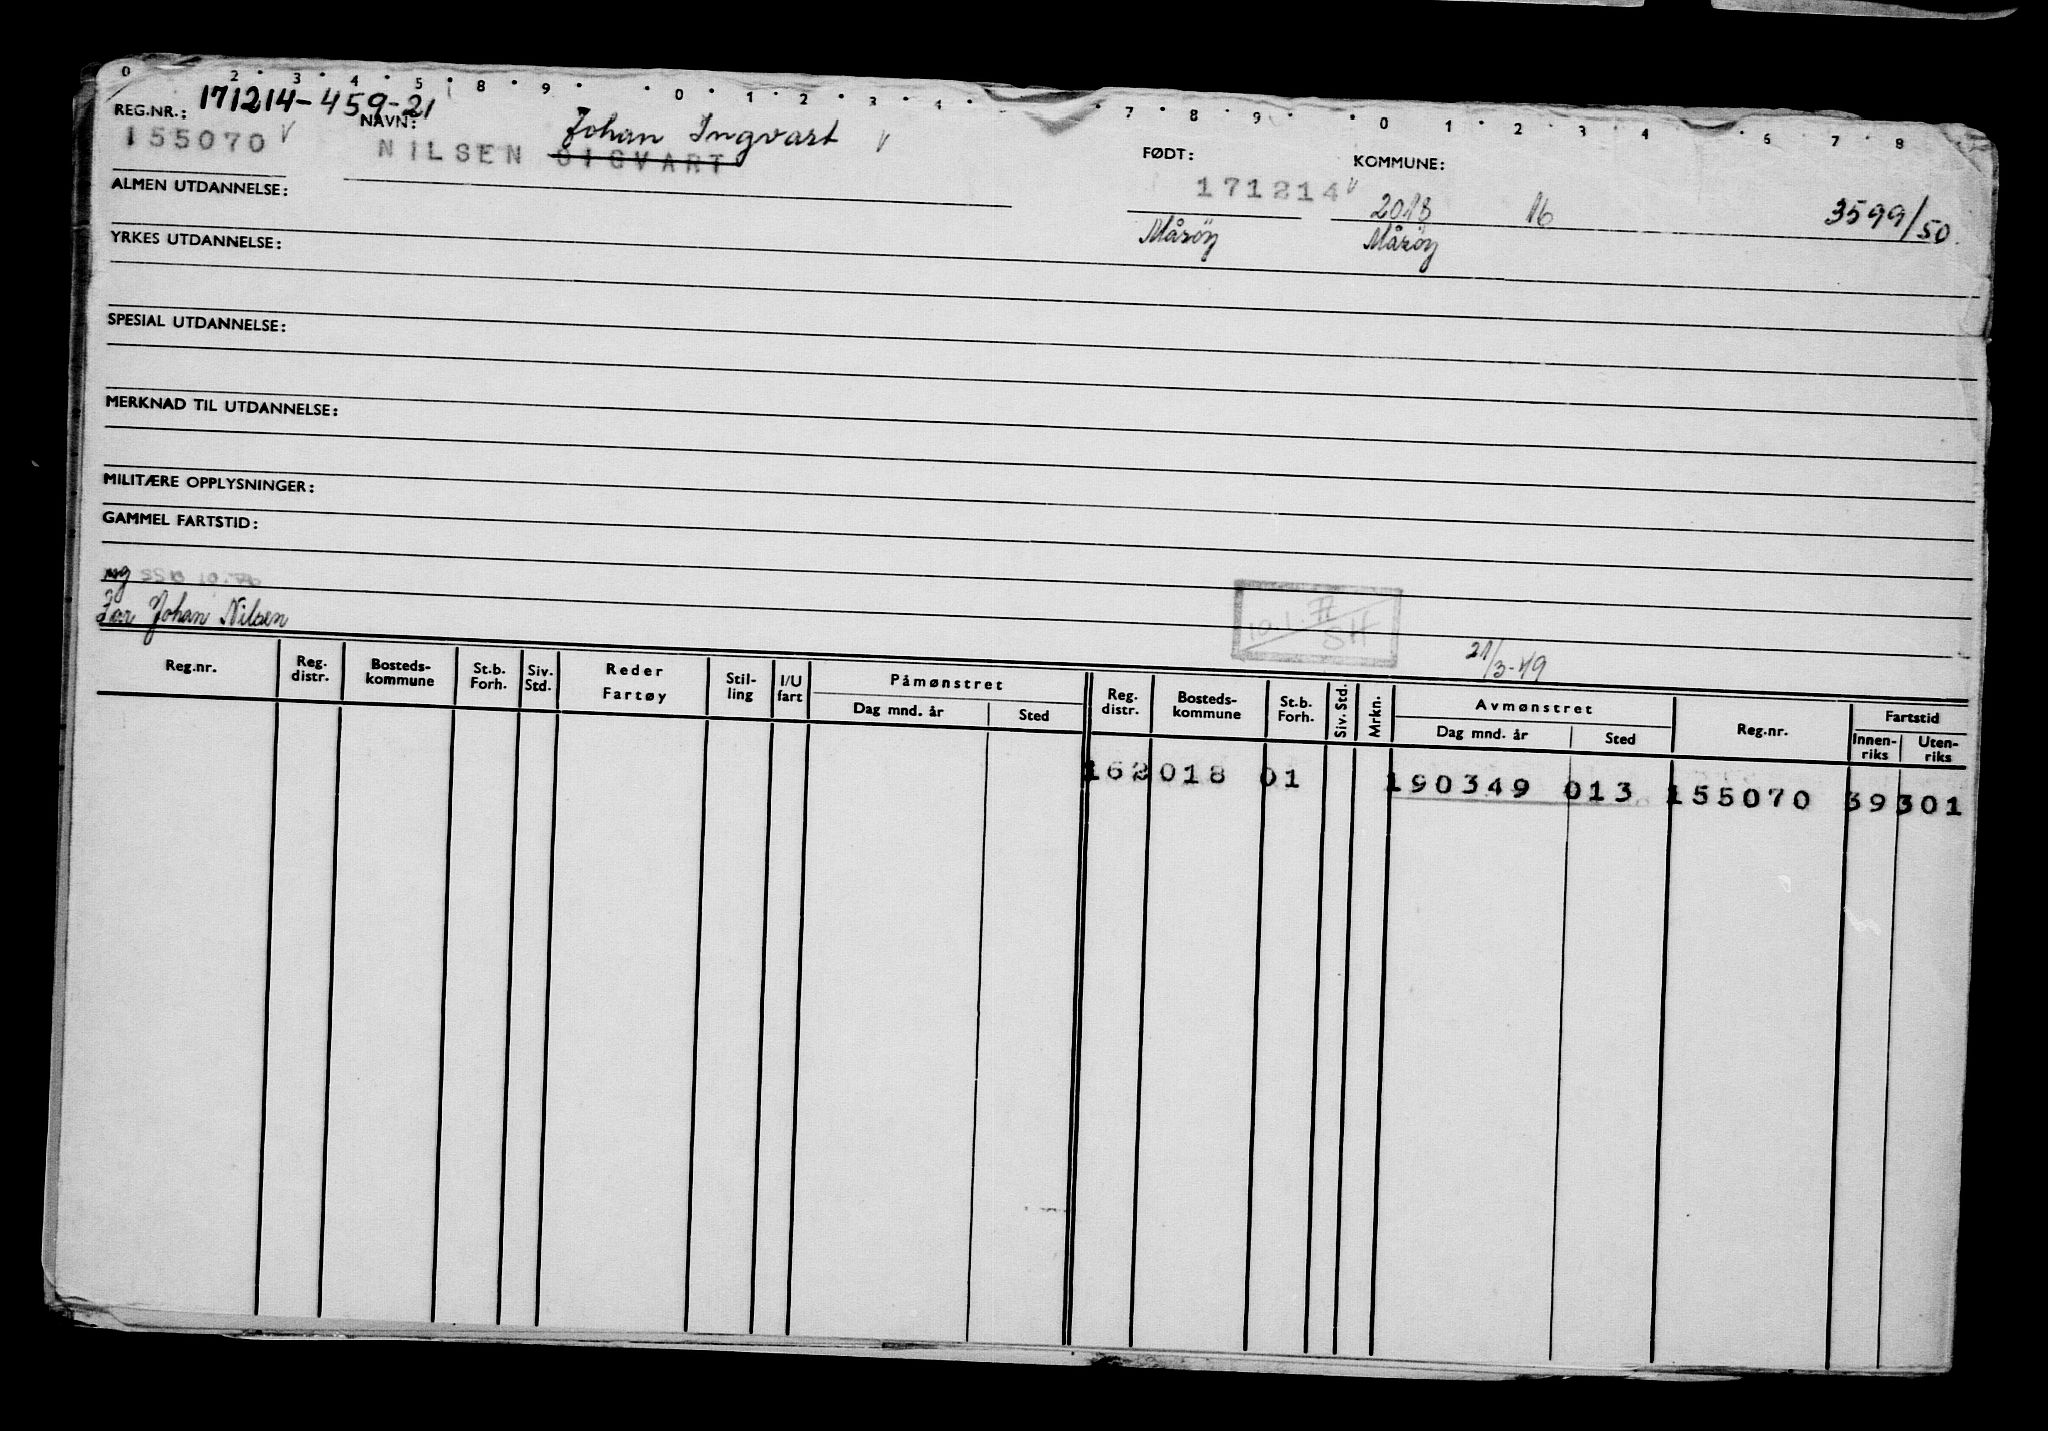 0 2 3 4 5 8 9 0 1 2 3 4 7 8 9 0 1 2 3 4 6 7 8
171214-459-21
REG.NR.: NAVN: Johan Ingvart V FØDT: KOMMUNE:
155070 V NILSEN SIGVART 171214 V 2018 16 3599/50
ALMEN UTDANNELSE: Måsøy Måsøy
YRKES UTDANNELSE:
SPESIAL UTDANNELSE:
MERKNAD TIL UTDANNELSE:
MILITÆRE OPPLYSNINGER:
GAMMEL FARTSTID:
Far Johan Nilsen
21/3-49
Reg.nr. Reg. distr. Bosteds-kommune St.b. Forh. Siv. Std. Reder Fartøy Stil-ling I/U fart Påmønstret Dag mnd. år Sted Reg. distr. Bosteds-kommune St.b. Forh. Siv. Std. Mrkn. Avmønstret Dag mnd. år Sted Reg.nr. Fartstid Innen-riks Uten-riks
162018 01 190349 013 155070 39301